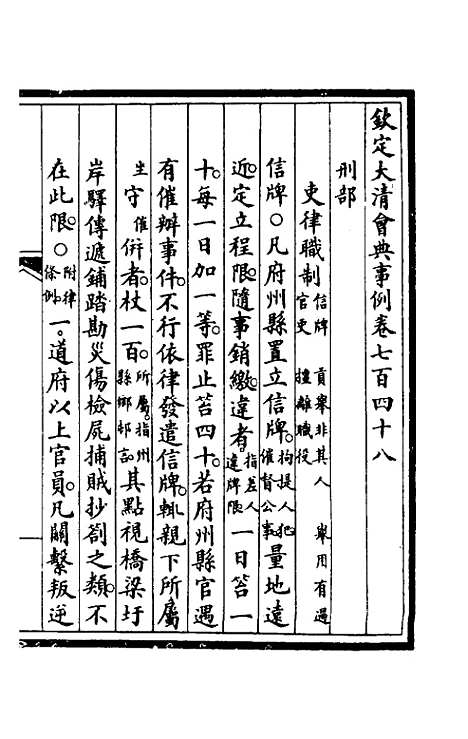 欽定大清會典事例卷七百四十八
刑部
吏律職制 信牌 貢舉非其人 舉用有過官吏 擅離職役
信牌○凡府州縣置立信牌拘提人犯催督公事量地遠
近定立程限隨事銷繳違者指差人違牌限一日笞一
十每一日加一等罪止笞四十若府州縣官遇
有催辦事件不行依律發遣信牌輒親下所屬
坐守催併者杖一百所屬指州縣鄉邨言其點視橋梁圩
岸驛傳遞鋪踏勘災傷檢屍捕賊抄劄之類不
在此限○附律條例一道府以上官員凡關繫叛逆